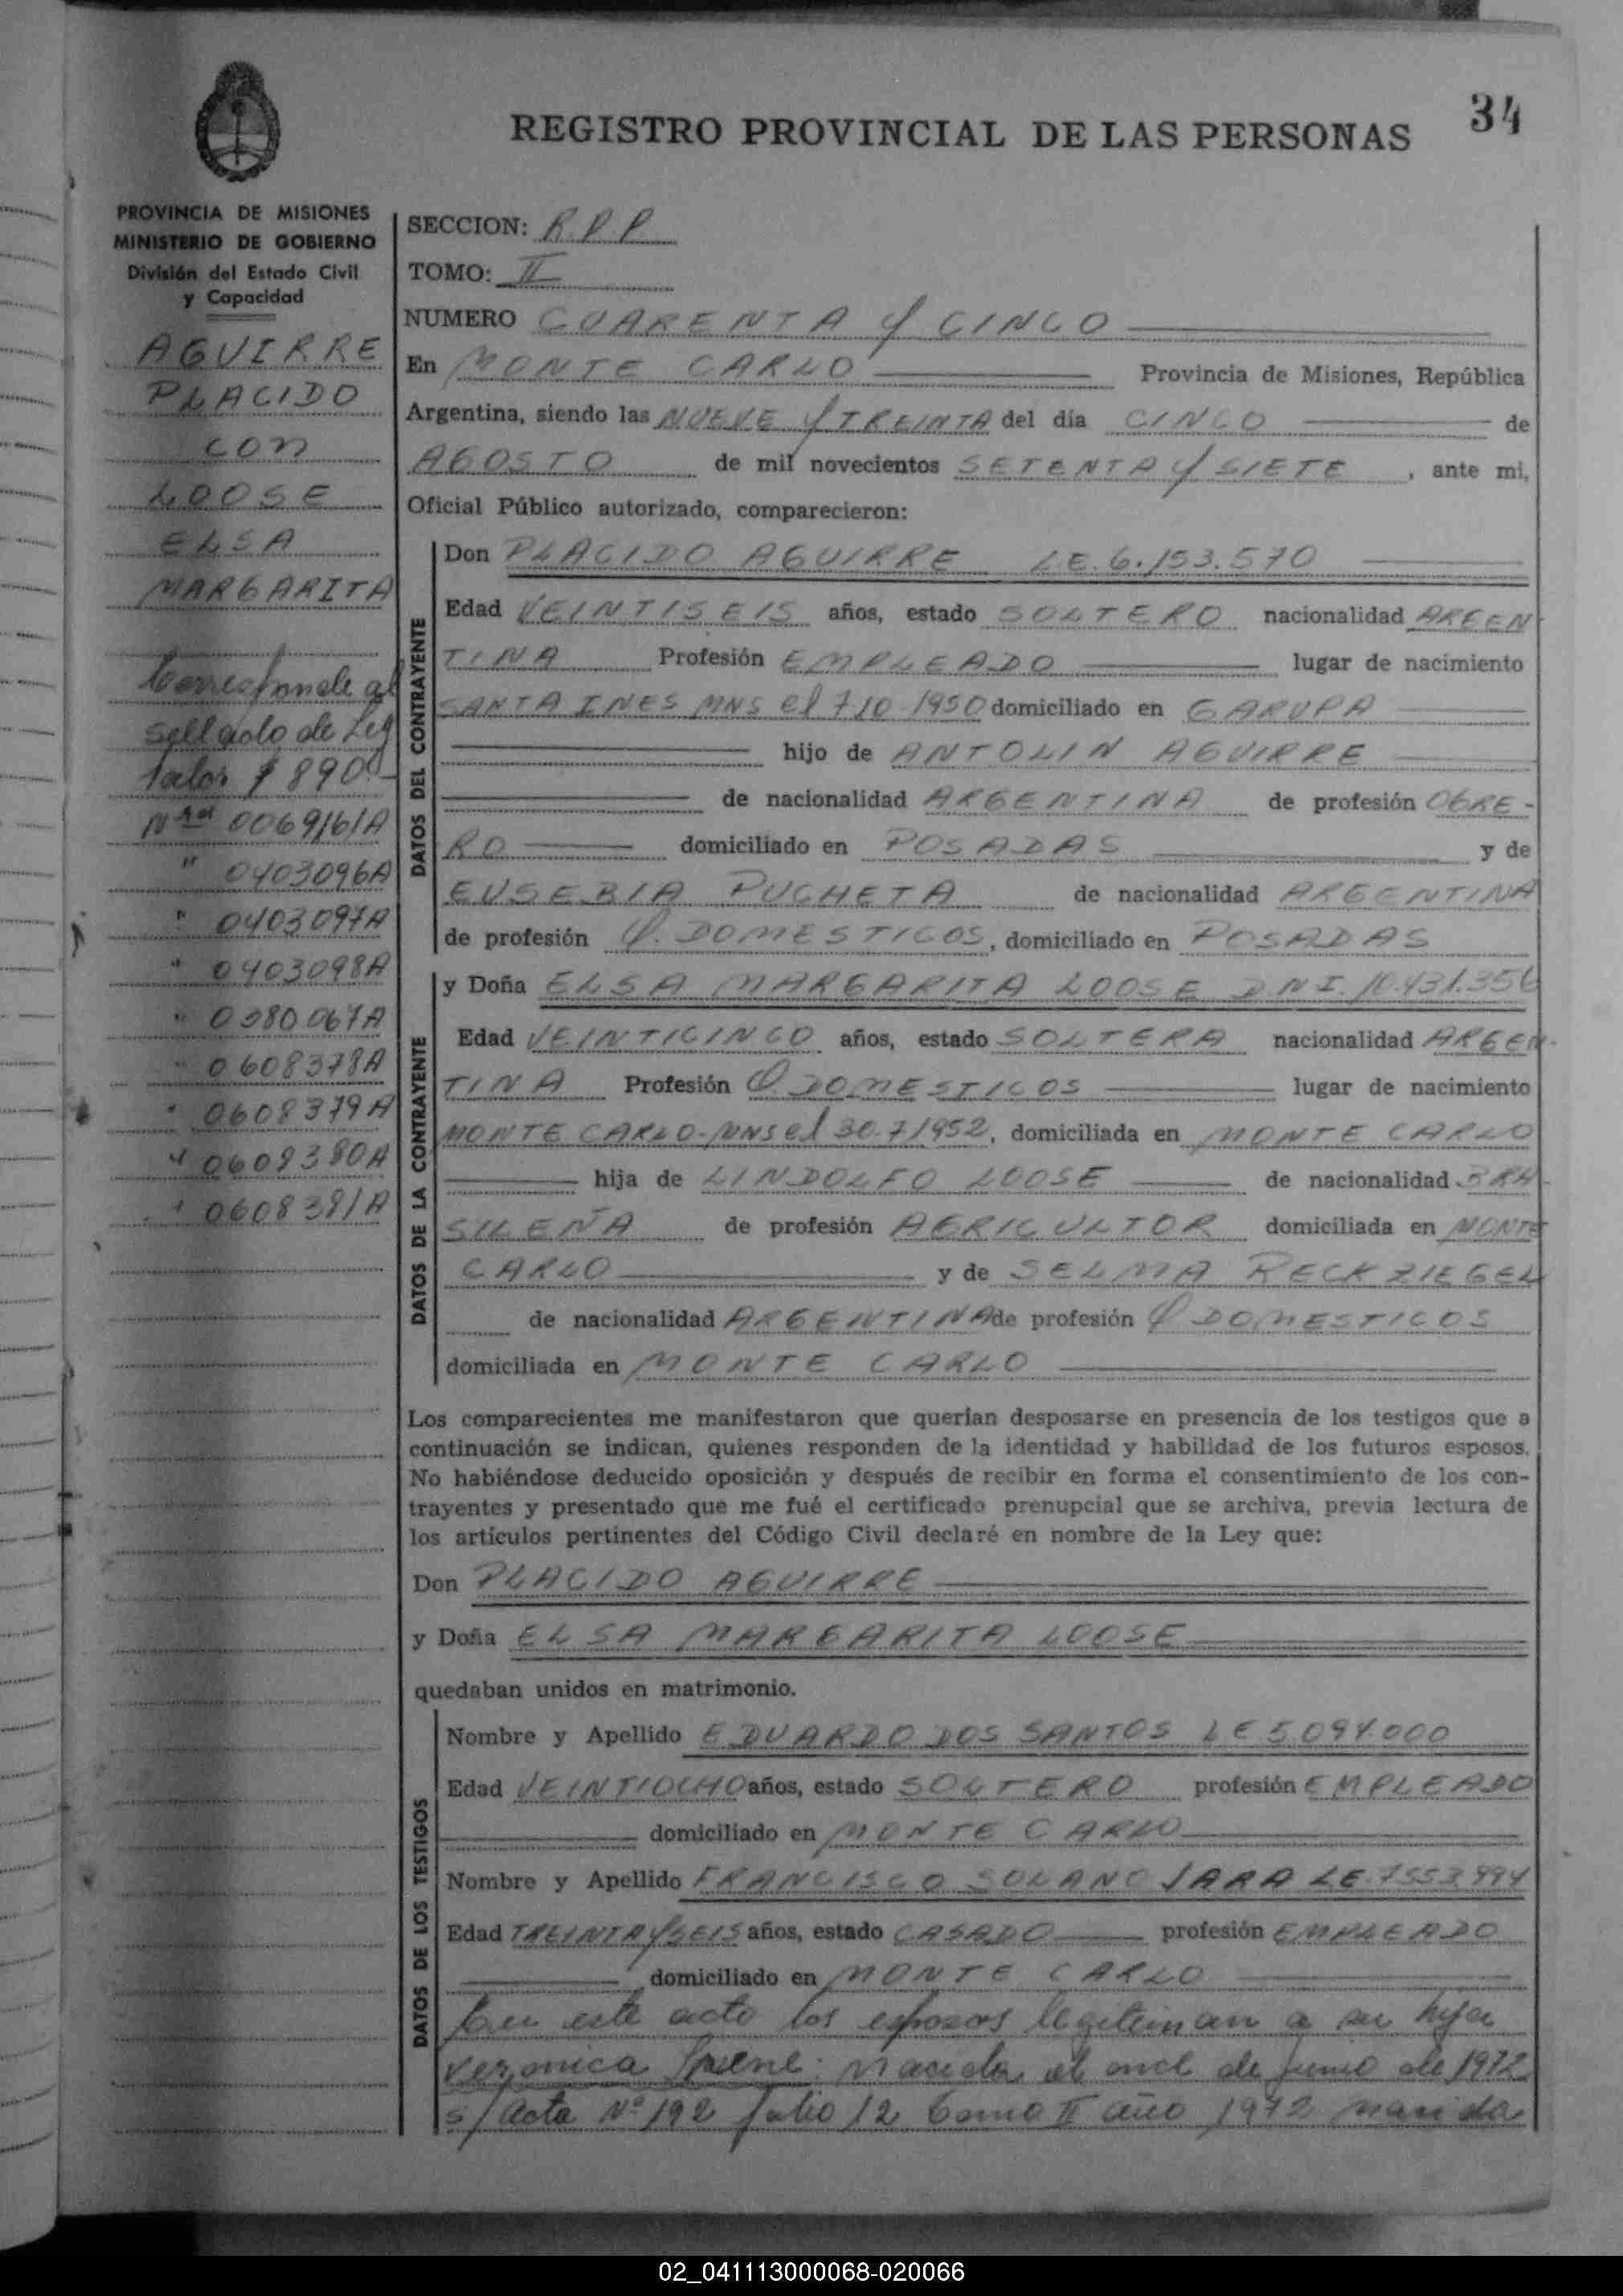 34
REGISTRO PROVINCIAL DE LAS PERSONAS
PROVINCIA DE MISIONES
MINISTERIO DE GOBIERNO
División del Estado Civil
y Capacidad
AGUIRRE
PLACIDO
CON
LOOSE
ELSA
MARGARITA
Corresponde al
sellado de Ley
Valor $ 890.-
Nros 0069161A
" 0403096A
" 0403097A
" 0403098A
" 0380067A
" 0608378A
" 0608379A
" 0608380A
" 0608381A
SECCION: R.P.P
TOMO: II
NUMERO CUARENTA Y CINCO
En MONTE CARLO Provincia de Misiones, República
Argentina, siendo las NUEVE Y TREINTA del día CINCO de
AGOSTO de mil novecientos SETENTA Y SIETE, ante mi,
Oficial Público autorizado, comparecieron:
DATOS DEL CONTRAYENTE
Don PLACIDO AGUIRRE L.E. 6.153.570
Edad VEINTISEIS años, estado SOLTERO nacionalidad ARGEN
TINA Profesión EMPLEADO lugar de nacimiento
SANTA INES MNS el 7 10-1950 domiciliado en GARUPA
hijo de ANTOLIN AGUIRRE
de nacionalidad ARGENTINA de profesión OBRE-
RO domiciliado en POSADAS y de
EUSEBIA PUCHETA de nacionalidad ARGENTINA
de profesión Q. DOMESTICOS, domiciliado en POSADAS
DATOS DE LA CONTRAYENTE
y Doña ELSA MARGARITA LOOSE D.N.I. 10.431.356
Edad VEINTICINCO años, estado SOLTERA nacionalidad ARGEN-
TINA Profesión Q DOMESTICOS lugar de nacimiento
MONTE CARLO-MNS el 30.7 1952, domiciliada en MONTE CARLO
hija de LINDOLFO LOOSE de nacionalidad BRA-
SILEÑA de profesión AGRICULTOR domiciliada en MONTE
CARLO y de SELMA RECKZIEGEL
de nacionalidad ARGENTINA de profesión Q DOMESTICOS
domiciliada en MONTE CARLO
Los comparecientes me manifestaron que querían desposarse en presencia de los testigos que a
continuación se indican, quienes responden de la identidad y habilidad de los futuros esposos.
No habiéndose deducido oposición y después de recibir en forma el consentimiento de los con-
trayentes y presentado que me fué el certificado prenupcial que se archiva, previa lectura de
los artículos pertinentes del Código Civil declaré en nombre de la Ley que:
Don PLACIDO AGUIRRE
y Doña ELSA MARGARITA LOOSE
quedaban unidos en matrimonio.
DATOS DE LOS TESTIGOS
Nombre y Apellido EDUARDO DOS SANTOS L E 5.094.000
Edad VEINTIOCHO años, estado SOLTERO profesión EMPLEADO
domiciliado en MONTE CARLO
Nombre y Apellido FRANCISCO SOLANO JARA L.E. 7553.994
Edad TREINTA Y SEIS años, estado CASADO profesión EMPLEADO
domiciliado en MONTE CARLO
En este acto los esposos legitiman a su hija
Veronica Irene: nacida el once de Junio de 1972
s/ Acta Nº 192 folio 12 tomo II año 1972 nacida
02_041113000068-020066